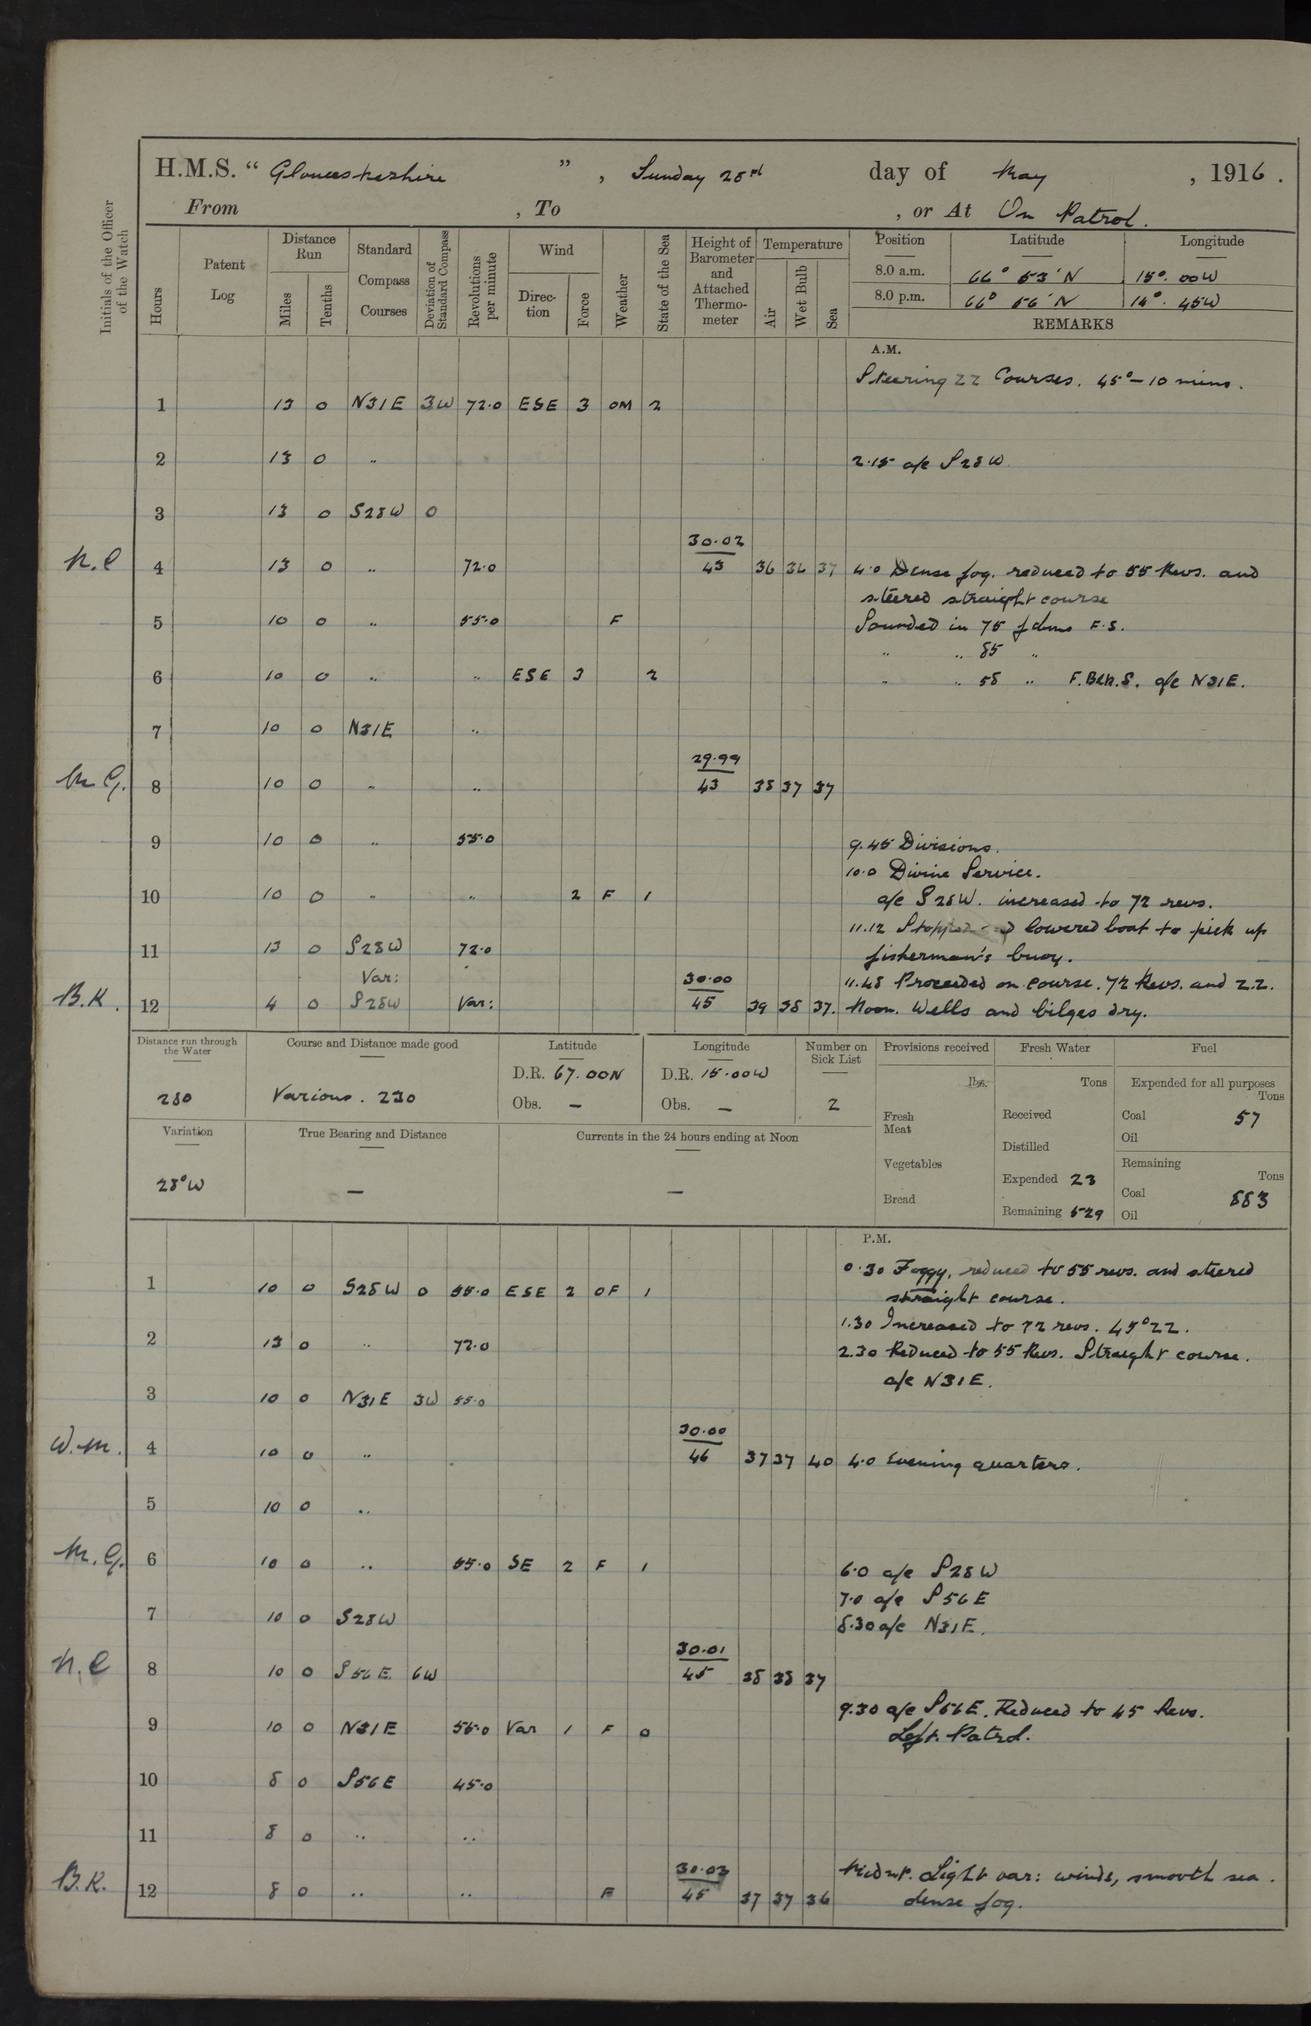 H.M.S. " Gloucestershire ", Sunday 28th day of May, 1916.
From , To , or At On Patrol.
Initials of the Officer of the Watch
Hours Patent Log Distance Run Miles Tenths Standard Compass Courses Deviation of Standard Compass Revolutions per minute Wind Direction Force Weather State of the Sea Height of Barometer and Attached Thermometer Temperature Air Wet Bulb Sea
Position Latitude Longitude
8.0 a.m. 66° 53' N 15°. 00W
8.0 p.m. 66° 56' N 14°. 45W
REMARKS
A.M.
Steering ZZ Courses. 45°-10 mins.
1 13 0 N31E 3W 72.0 ESE 3 OM 2
2 13 0 " 2.15 a/c S28W
3 13 0 S28W 0
30.02
N.C 4 13 0 " 72.0 43 36 36 37 4.0 Dense fog. reduced to 55 Revs. and
steered straight course
5 10 0 " 55.0 F Sounded in 75 fdms F.S.
" " 85 "
6 10 0 " " ESE 3 2 " " 58 " F.Blk.S. a/c N31E.
7 10 0 N31E "
29.99
M.G. 8 10 0 " " 43 38 37 37
9 10 0 " 55.0 9.45 Divisions.
10.0 Divine Service.
10 10 0 " " 2 F 1 a/c S28W. increased to 72 revs.
11.12 Stopped and lowered boat to pick up
11 13 0 S28W 72.0 fisherman's buoy.
Var: 30.00 11.48 Proceeded on course. 72 Revs. and Z.Z.
B.K. 12 4 0 S28W Var: 45 39 38 37. Noon. Wells and bilges dry.
Distance run through the Water Course and Distance made good Latitude Longitude Number on Sick List Provisions received Fresh Water Fuel
280 Various. 230 D.R. 67.00N D.R. 15.00W 2
Obs. — Obs. —
lbs. Tons Expended for all purposes Tons
Fresh Meat Received Coal 57
Distilled Oil
Variation True Bearing and Distance Currents in the 24 hours ending at Noon
28°W — —
Vegetables Expended 23 Remaining Tons
Bread Remaining 529 Coal 883
Oil
P.M.
0.30 Foggy, reduced to 55 revs. and steered
1 10 0 S28W 0 55.0 ESE 2 OF 1 straight course.
1.30 Increased to 72 revs. 45° ZZ.
2 13 0 " 72.0 2.30 Reduced to 55 Revs. Straight course.
a/c N31E.
3 10 0 N31E 3W 55.0
30.00
W.M. 4 10 0 " 46 37 37 40 4.0 Evening quarters.
5 10 0 "
M.G. 6 10 0 " 55.0 SE 2 F 1 6.0 a/c S28W
7.0 a/c S56E
7 10 0 S28W 8.30 a/c N31E.
30.01
N.C 8 10 0 S56E 6W 45 38 38 37
9.30 a/c S56E. Reduced to 45 Revs.
9 10 0 N31E 55.0 Var 1 F 0 Left Patrol.
10 8 0 S56E 45.0
11 8 0 " "
30.03
B.K. 12 8 0 " " F 45 37 37 36 Midnt. Light var: winds, smooth sea.
dense fog.